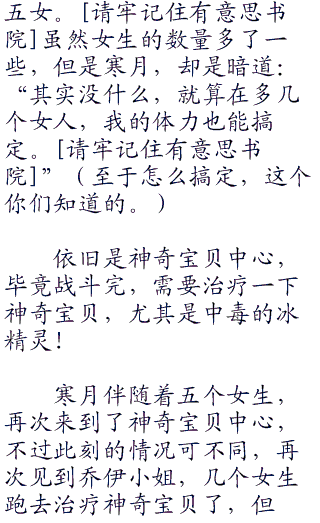 五女。[请牢记住有意思书
院]虽然女生的数量多了一
些，但是寒月，却是暗道：
“其实没什么，就算在多几
个女人，我的体力也能搞
定。[请牢记住有意思书
院]”（至于怎么搞定，这个
你们知道的。）
依旧是神奇宝贝中心，
毕竟战斗完，需要治疗一下
神奇宝贝，尤其是中毒的冰
精灵！
寒月伴随着五个女生，
再次来到了神奇宝贝中心，
不过此刻的情况可不同，再
次见到乔伊小姐，几个女生
跑去治疗神奇宝贝了，但